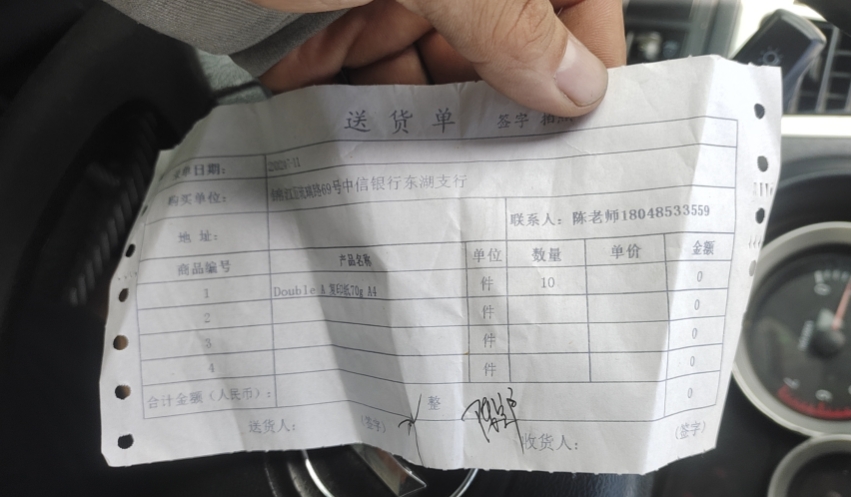 送货单 签字
单日期:
购买单位: 69号中信银行东湖支行
地 址: 联系人: 陈老师18048533559
商品编号 产品名称 单位 数量 单价 金额
1 Double A 复印纸70g A4 件 10 0
2 件 0
3 件 0
4 件 0
合计金额(人民币): 整 0
送货人: (签字) 收货人: (签字)